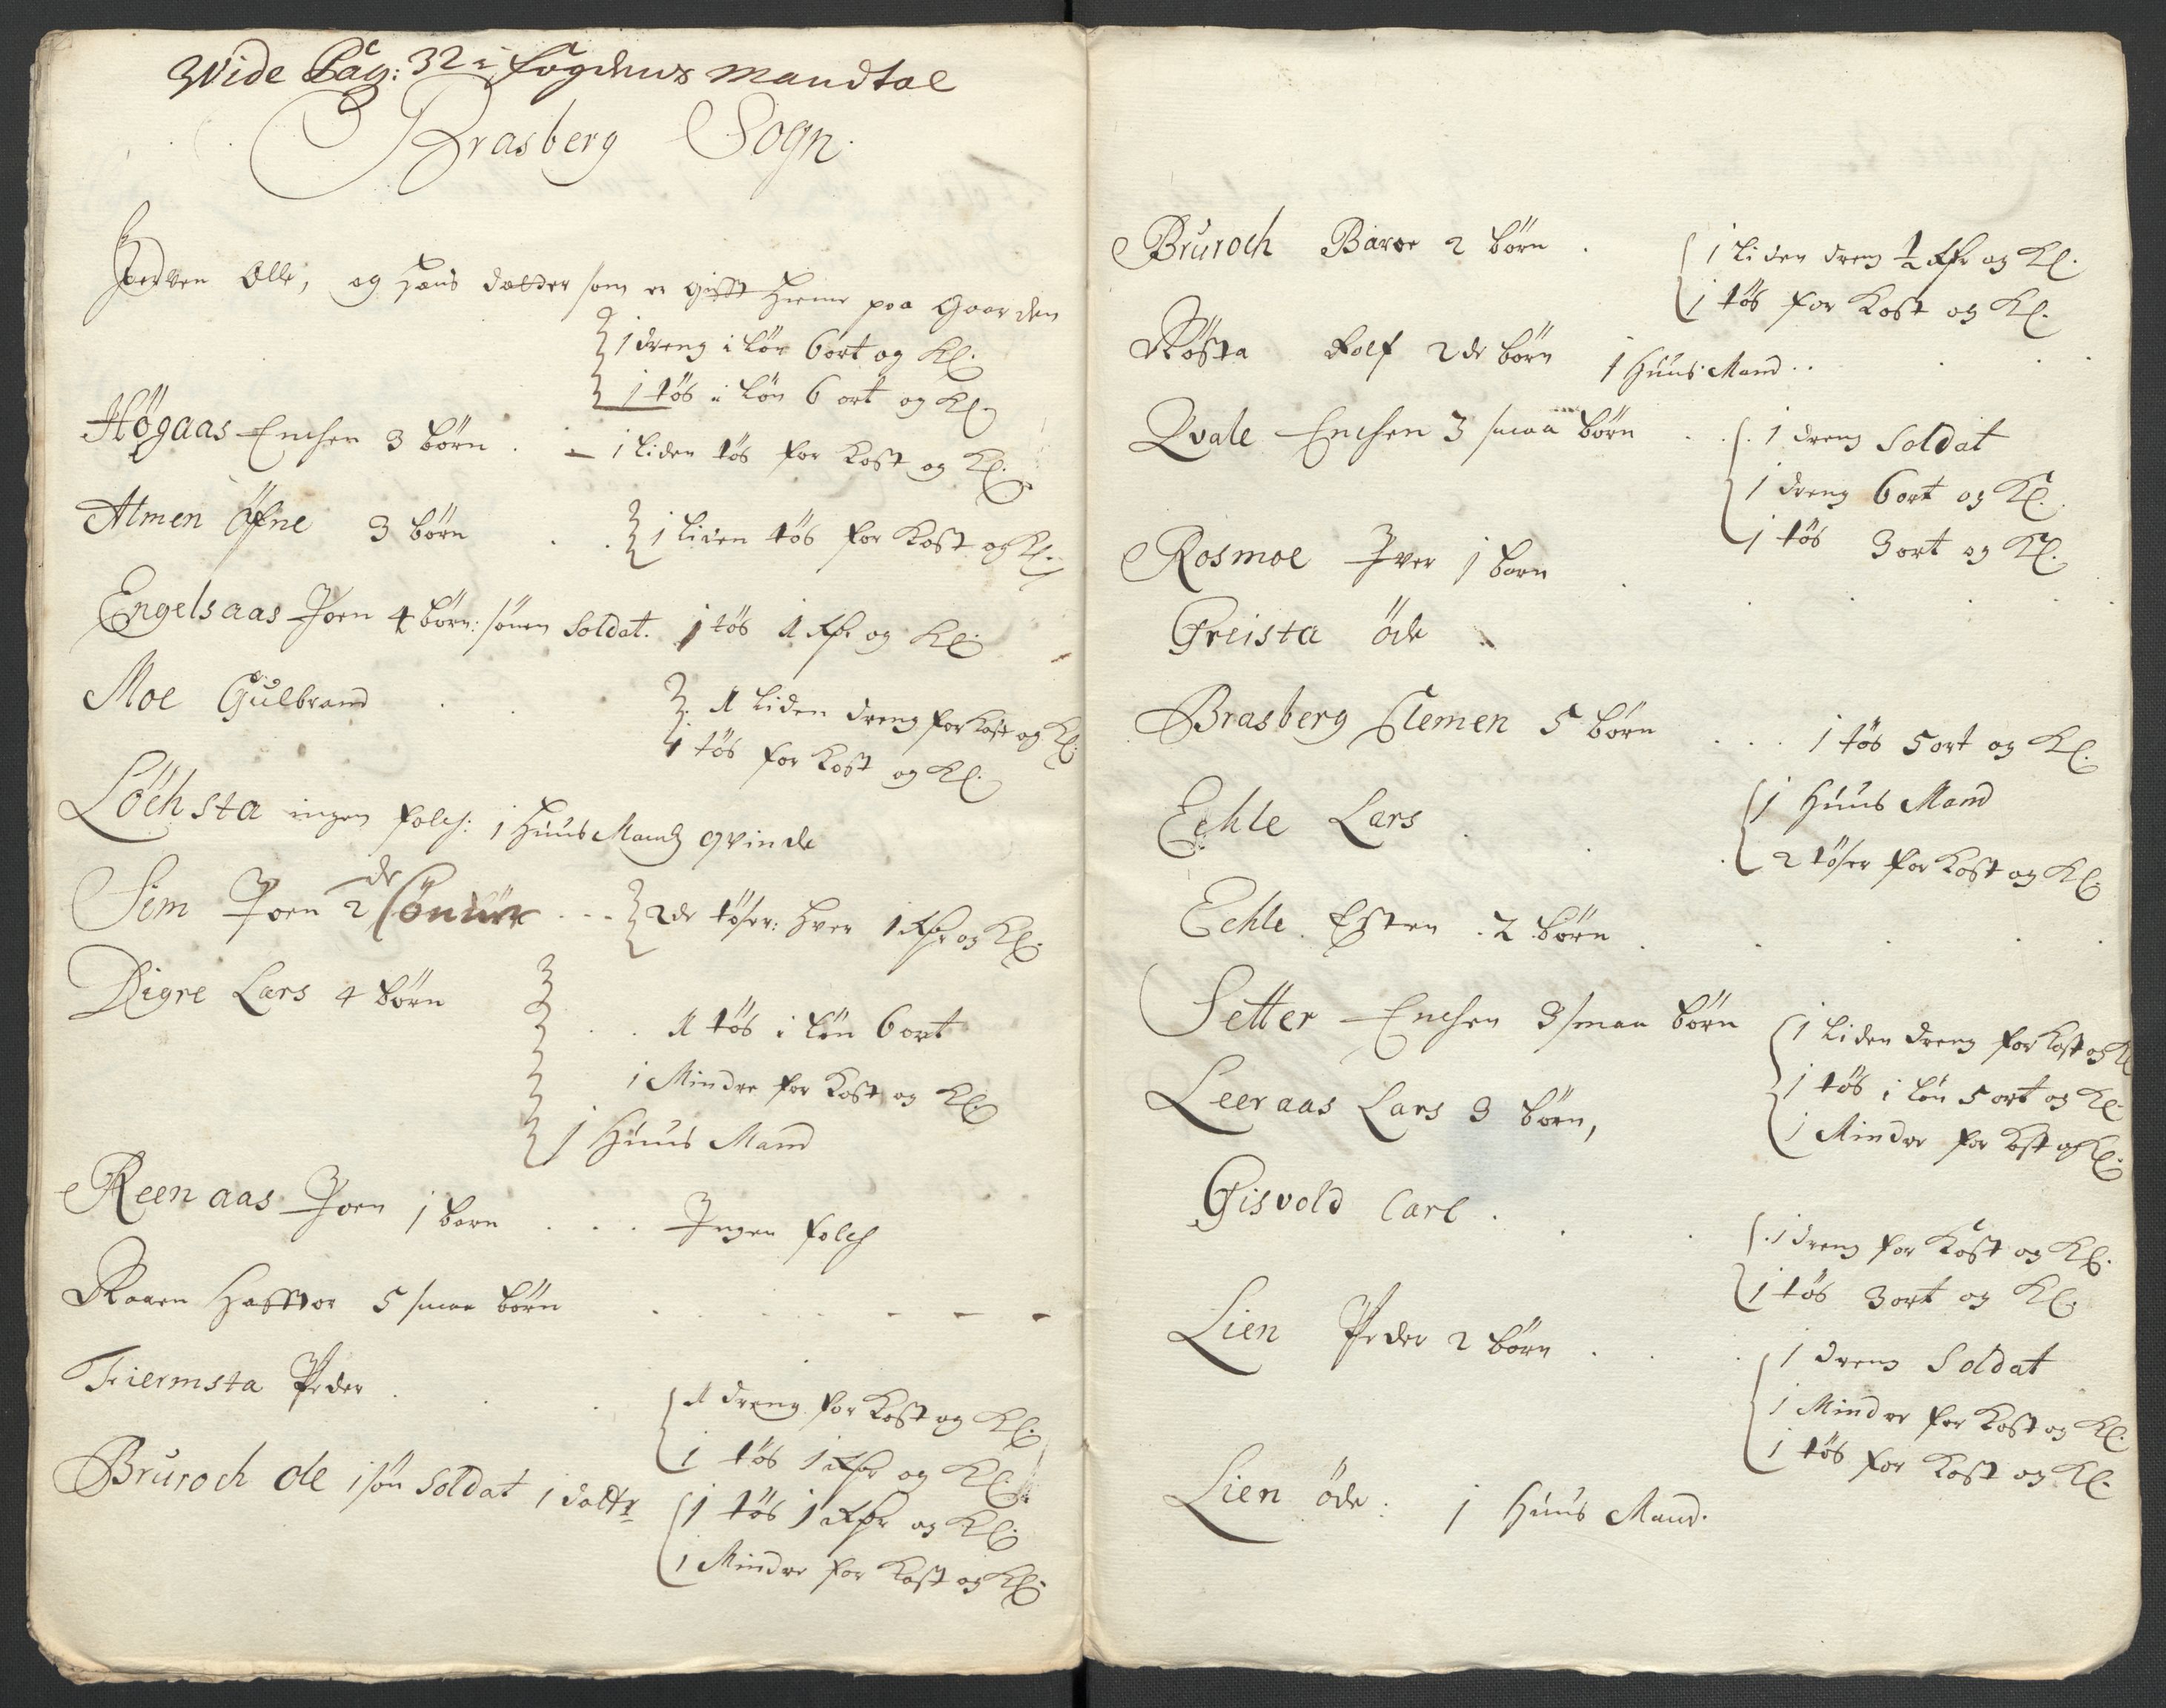 Vide Pag: 32 i fogdens Mandtal
Brasberg Sogn.
Olle, og Hans datter som er gifft Hieme paa Gaarden
1 dreng i løn 6 ort og Kl.
1 tøs i løn 6 ort og Kl.
Högaas Enchen 3 börn . 1 liden tøs for Kost og Kl.
Almen Öfne 3 börn . . 1 liden tös for Kost og Kl.
Engelsaas Joen 4 börn: sönen Soldat. 1 tös 1 Rdr og Kl.
Moe Gulbrand . . 1 liden dreng for Kost og Kl.
1 tös for Kost og Kl.
Löchsta ingen folch: 1 Huus Mands qvinde
Sem Joen 2 de Sönner . . . 2de töser: hver 1 Rdr og Kl.
Digre Lars 4 börn
. . 1 tös i løn 6 ort
1 Mindre for Kost og Kl.
1 Huus Mand
Reenaas Joen 1 barn . . . Ingen folch
Raaen Hafftor 5 smaa börn
Fiermsta Peder . . . 1 dreng for Kost og Kl.
1 tös 1 Rdr og Kl.
Bruroch Ole 1 sön Soldat 1 dattr 1 tös 1 Rdr og Kl.
1 Mindre for Kost og Kl.
Bruroch Baroe 2 börn . 1 liden dreng ½ Rdr og Kl.
1 tös for Kost og Kl.
Rösta Rolf 2de börn 1 Huus Mand . .
Qvale Enchen 3 smaa börn . . 1 dreng Soldat
1 dreng 6 ort og Kl.
1 tös 3 ort og Kl.
Rosmoe Iver 1 barn
Greista öde
Brasberg Clemen 5 börn . . . 1 tös 5 ort og Kl.
Echle Lars . 1 Huus Mand
2 töser for Kost og Kl.
Echle Esten . 2 börn .
Setter Enchen 3 smaa börn 1 liden dreng for Kost og Kl
Leeraas Lars 3 börn, 1 tös i løn 5 ort og Kl.
1 Mindre for Kost og Kl.
Gisvold Carl . . . 1 dreng for Kost og Kl.
1 tös 3 ort og Kl.
Lien Peder 2 börn . . . 1 dreng Soldat
1 Mindre for Kost og Kl.
1 tös for Kost og Kl.
Lien öde: 1 Huus Mand.